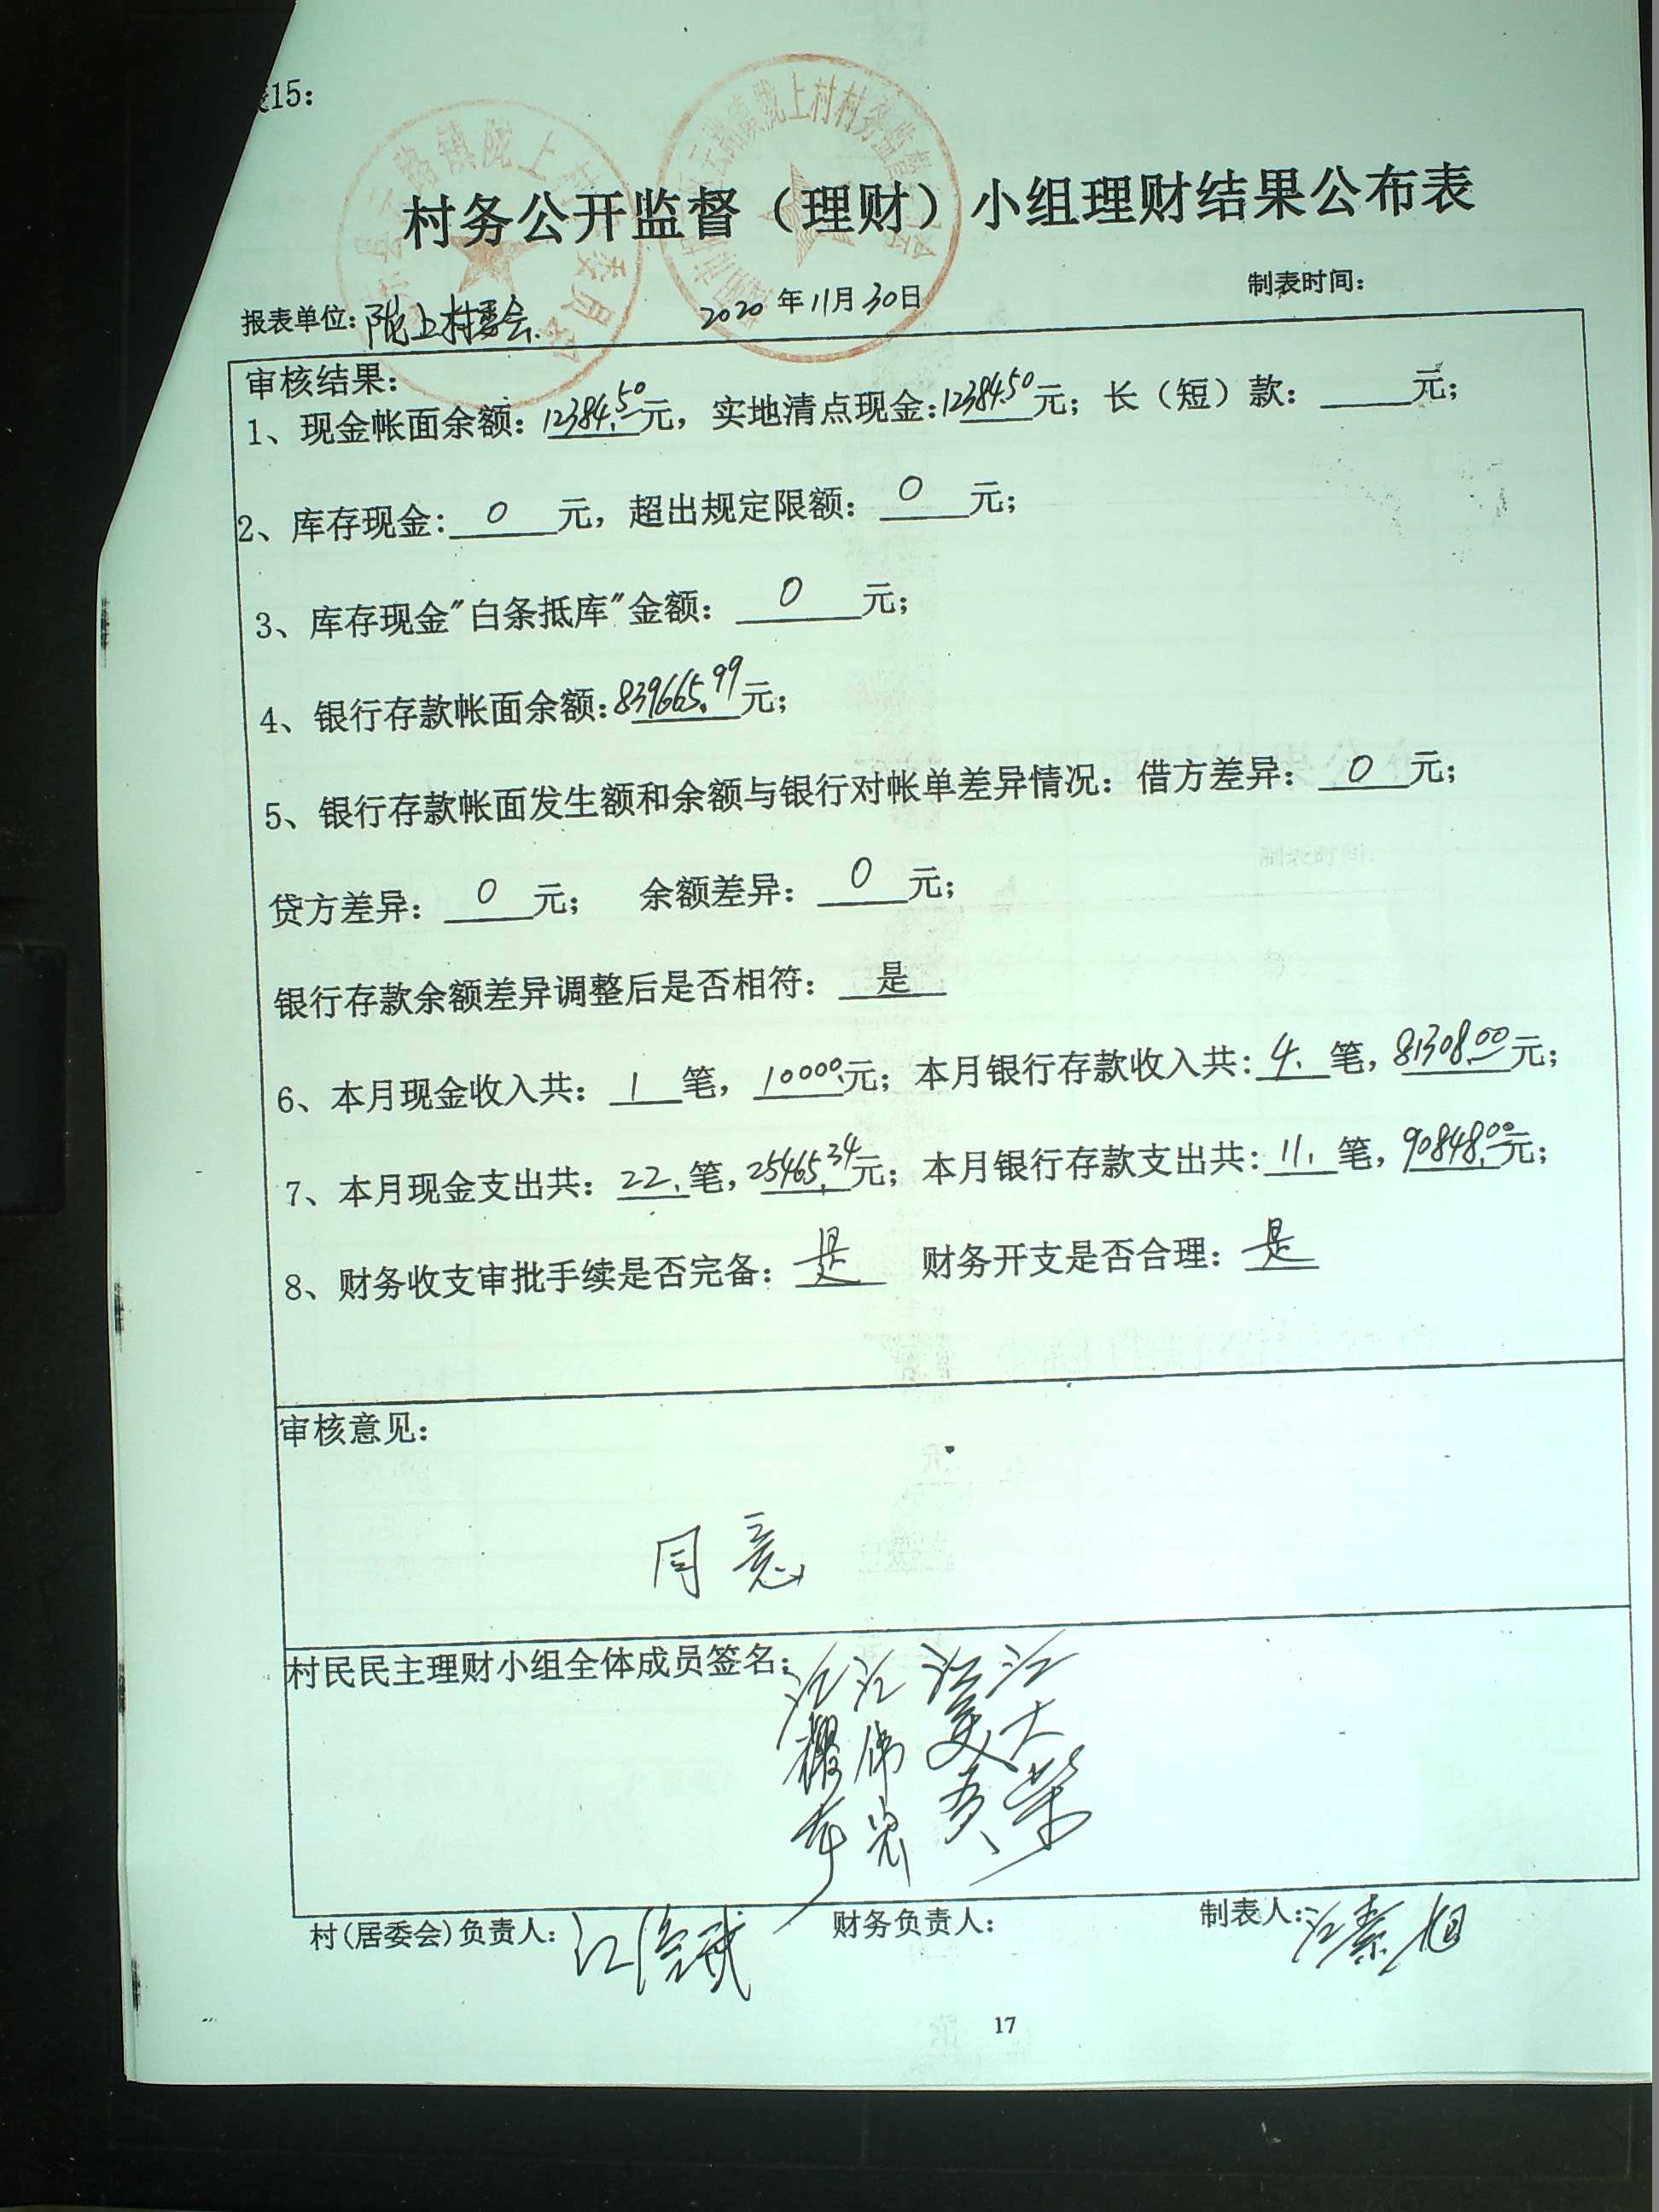 表15：
村务公开监督（理财）小组理财结果公布表
报表单位：陇上村委会. 2020年11月30日 制表时间：
审核结果：
1、现金帐面余额：12384.50元，实地清点现金：12384.50元；长（短）款：____元；
2、库存现金：0元，超出规定限额：0元；
3、库存现金"白条抵库"金额：0元；
4、银行存款帐面余额：839665.99元；
5、银行存款帐面发生额和余额与银行对帐单差异情况：借方差异：0元；
贷方差异：0元； 余额差异：0元；
银行存款余额差异调整后是否相符：是
6、本月现金收入共：1笔，10000元；本月银行存款收入共：4.笔，81308.00元；
7、本月现金支出共：22.笔，25465.34元；本月银行存款支出共：11.笔，90848.00元；
8、财务收支审批手续是否完备：是 财务开支是否合理：是
审核意见：
同意
村民民主理财小组全体成员签名：
江大荣
村(居委会)负责人： 财务负责人： 制表人：
17